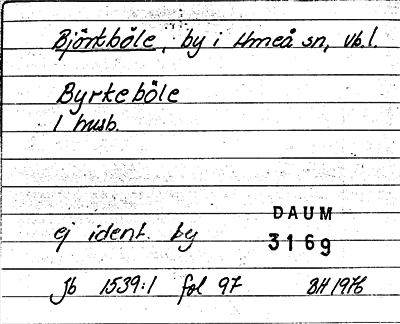 Björtböle, by i Umeå sn, Vb.l.
Byrkeböle
1 husb.
DAUM
ej ident. by
3169
Jb 1539:1 fol 97
BH 1976